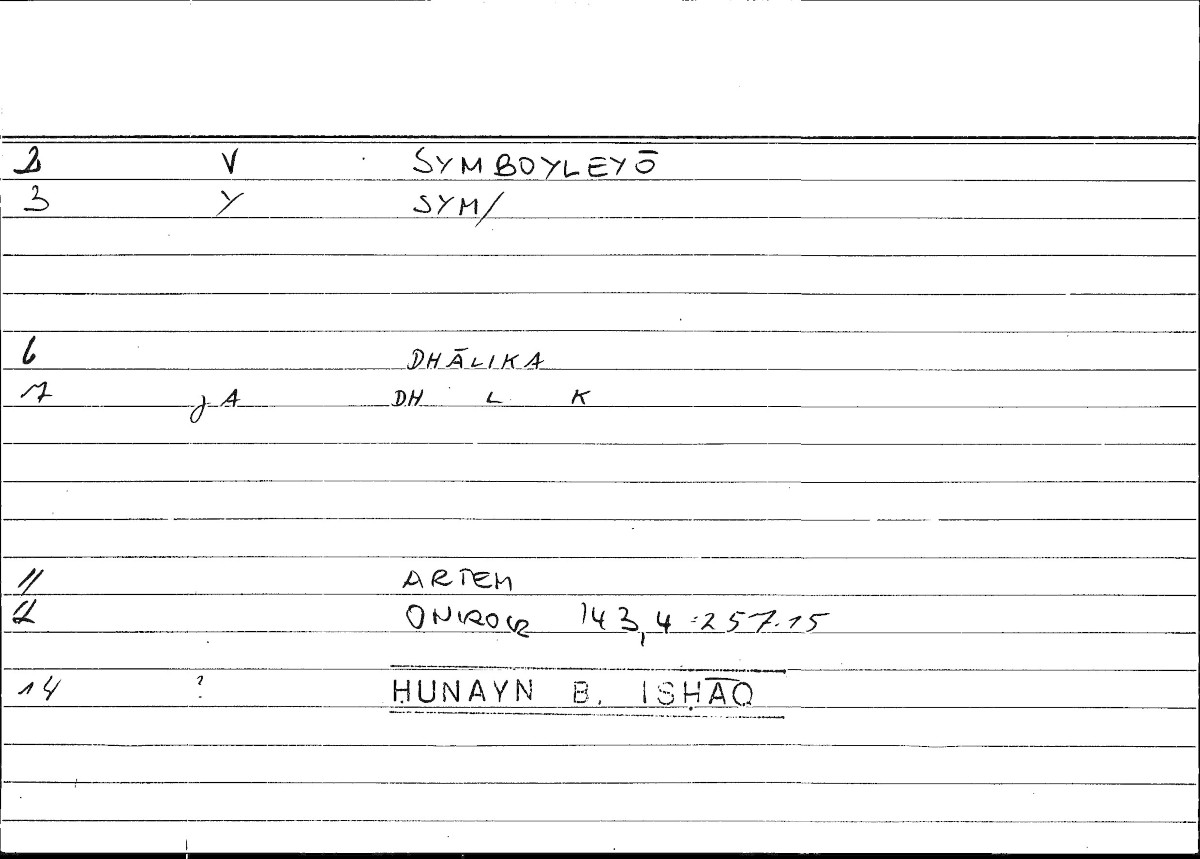 2 V SYMBOYLEYŌ
3 Y SYM/
6 DHĀLIKA
7 jA DH L K
11 ARTEM
12 ONIROCR 143,4 :257.15
14 ? ḤUNAYN B. ISḤĀQ